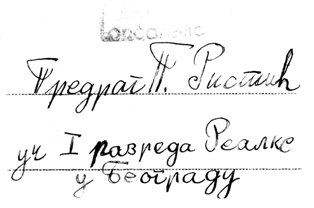 Предраг П. Ристић
уч I разреда Реалке
у Београду